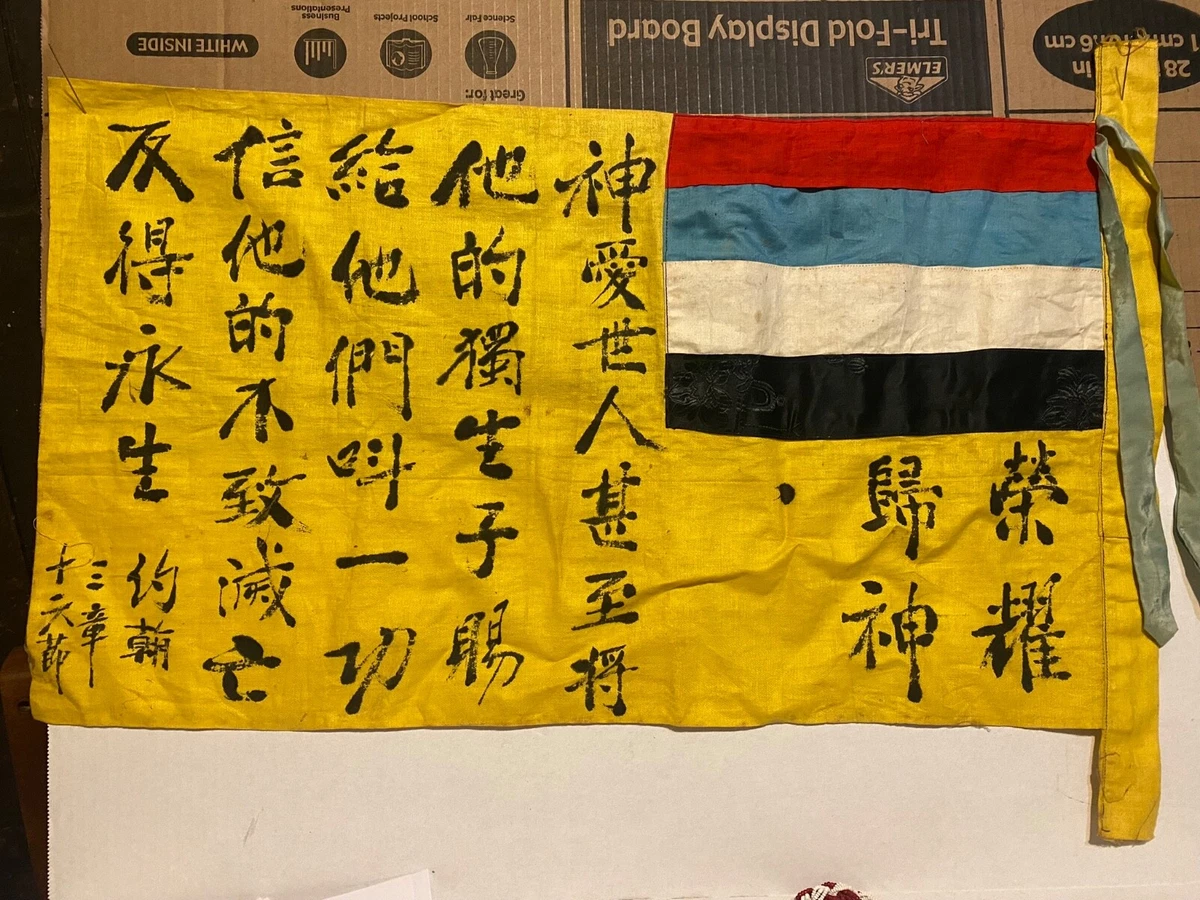 榮耀
歸神
神愛世人甚至將
他的獨生子賜
給他們呌一功
信他的不致滅亡
反得永生
約翰
三章
十六莭
ELMER'S
Tri-Fold Display Board
Great for:
Science Fair
School Projects
Business
Presentations
WHITE INSIDE